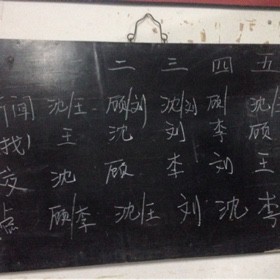 二 三 四 五
新闻 沈/王 顾/刘 沈/刘 顾/李 沈/王
(找) 王 沈 刘 李 顾
沈 顾 李 刘 王
点 顾/李 沈/王 刘 沈 李